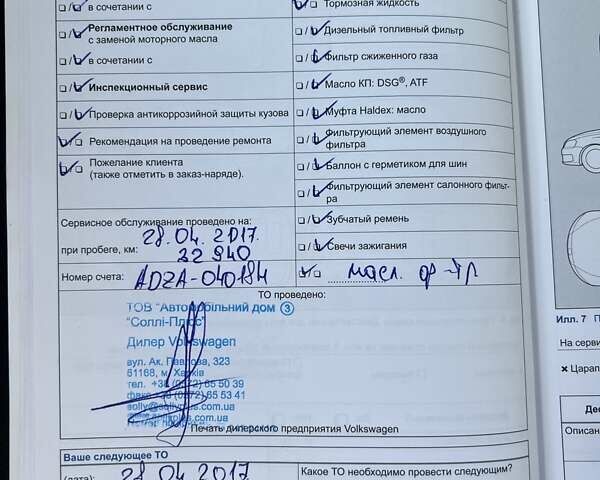 в сочетании с
Тормозная жидкость
Регламентное обслуживание
с заменой моторного масла
Дизельный топливный фильтр
в сочетании с
Фильтр сжиженного газа
Инспекционный сервис
Масло КП: DSG®, ATF
Проверка антикоррозийной защиты кузова
Муфта Haldex: масло
Рекомендация на проведение ремонта
Фильтрующий элемент воздушного
фильтра
Пожелание клиента
(также отметить в заказ-наряде).
Баллон с герметиком для шин
Фильтрующий элемент салонного фильт-
ра
Сервисное обслуживание проведено на:
28.04.2017.
Зубчатый ремень
при пробеге, км: 22 940
Свечи зажигания
Номер счета: ADZA-040184
масл.
ТО проведено:
ТОВ "Автомобільний дом 3
"Соллі-Плюс"
Дилер Volkswagen
вул. Ак. Павлова, 323
61168, м. Харків
тел. +38 (0572) 65 50 39
факс +38 (0572) 65 53 41
solly@sollyplus.com.ua
Печать дилерского предприятия Volkswagen
Ваше следующее ТО
(дата): 28.04.2017
Какое ТО необходимо провести следующим?
Илл. 7
На серви
Царап
Дес
Описан